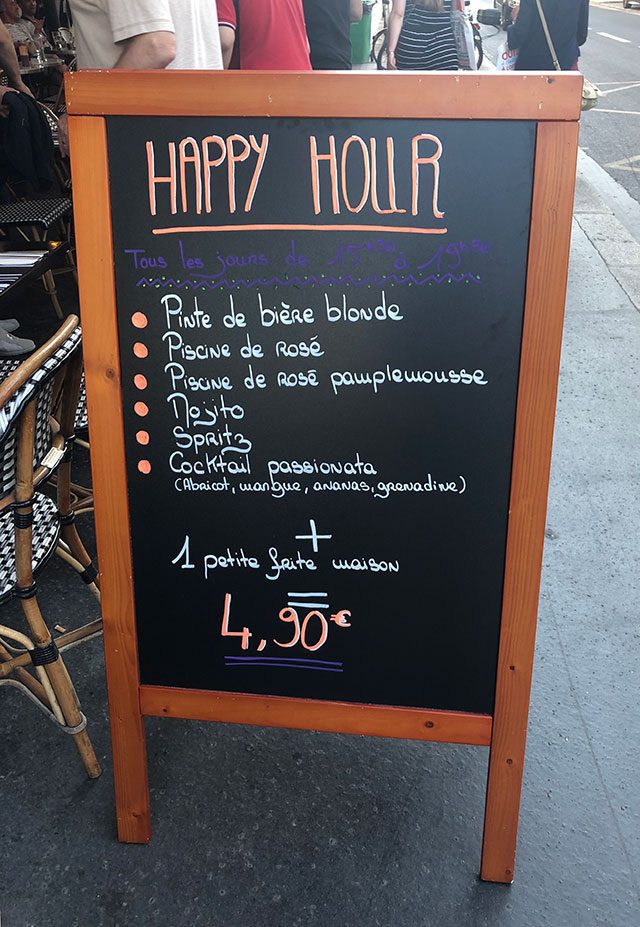 HAPPY HOUR
Tous les jours de 15h30 à 19h30
Pinte de bière blonde
Piscine de rosé
Piscine de rosé pamplemousse
Mojito
Spritz
Cocktail passionata
(Abricot, mangue, ananas, grenadine)
+
1 petite frite maison
=
4,90€